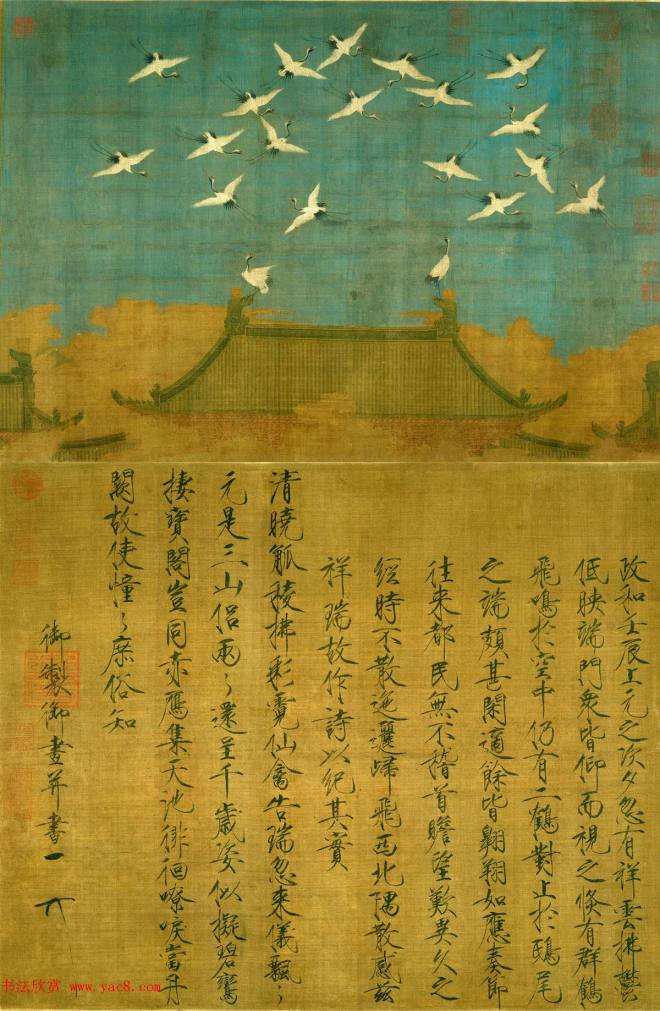 政和壬辰上元之次夕忽有祥雲拂鬱
低映端門衆皆仰而視之倏有群鶴
飛鳴於空中仍有二鶴對止於鴟尾
之端頗甚閑適餘皆翱翔如應奏節
往來都民無不稽首瞻望歎異久之
經時不散迤邐歸飛西北隅散感茲
祥瑞故作詩以紀其實
清曉觚稜拂彩霓仙禽告瑞忽來儀飄〻
元是三山侶兩〻還呈千歲姿似擬碧鸞
棲寶閣豈同赤鴈集天池徘徊嘹唳當丹
闕故使憧〻庶俗知
御製御畫并書
书法欣赏 www.yac8.com